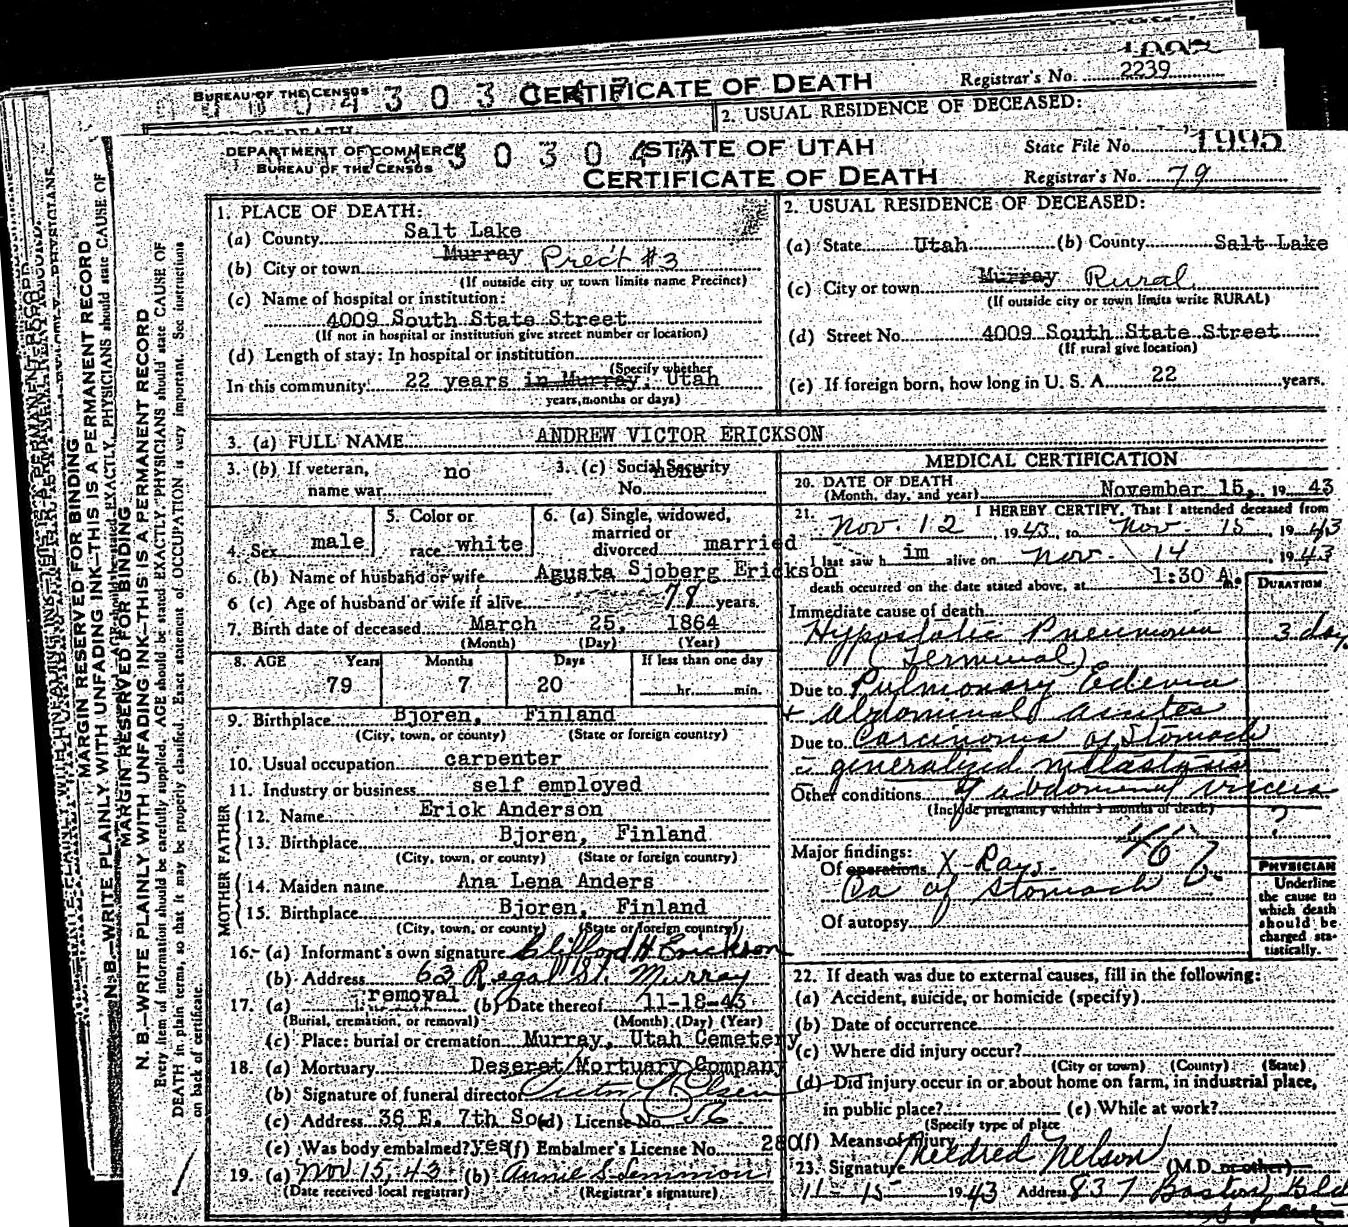 BUREAU OF THE CENSUS
CERTIFICATE OF DEATH
Registrar's No. 2239
2. USUAL RESIDENCE OF DECEASED:
DEPARTMENT OF COMMERCE
BUREAU OF THE CENSUS
STATE OF UTAH
CERTIFICATE OF DEATH
State File No. 1995
Registrar's No. 79
MARGIN RESERVED FOR BINDING
N. B.—WRITE PLAINLY WITH UNFADING INK—THIS IS A PERMANENT RECORD
Every item of information should be carefully supplied. AGE should be stated EXACTLY. PHYSICIANS should state CAUSE OF
DEATH in plain terms, so that it may be properly classified. Exact statement of OCCUPATION is very important. See instructions
on back of certificate.
1. PLACE OF DEATH:
(a) County Salt Lake
(b) City or town Murray Prec't #3
(If outside city or town limits name Precinct)
(c) Name of hospital or institution:
4009 South State Street
(If not in hospital or institution give street number or location)
(d) Length of stay: In hospital or institution
(Specify whether
In this community 22 years in Murray, Utah
years, months or days)
2. USUAL RESIDENCE OF DECEASED:
(a) State Utah (b) County Salt Lake
(c) City or town Murray Rural
(If outside city or town limits write RURAL)
(d) Street No. 4009 South State Street
(If rural give location)
(e) If foreign born, how long in U. S. A. 22 years.
3. (a) FULL NAME ANDREW VICTOR ERICKSON
3. (b) If veteran, no
name war
3. (c) Social Security
No. none
4. Sex male
5. Color or
race white
6. (a) Single, widowed,
married or
divorced married
6. (b) Name of husband or wife Agusta Sjoberg Erickson
6 (c) Age of husband or wife if alive 78 years.
7. Birth date of deceased March 25, 1864
(Month) (Day) (Year)
8. AGE Years Months Days If less than one day
79 7 20 hr. min.
9. Birthplace Bjoren, Finland
(City, town, or county) (State or foreign country)
10. Usual occupation carpenter
11. Industry or business self employed
FATHER
12. Name Erick Anderson
13. Birthplace Bjoren, Finland
(City, town, or county) (State or foreign country)
MOTHER
14. Maiden name Ana Lena Anders
15. Birthplace Bjoren, Finland
(City, town, or county) (State or foreign country)
16. (a) Informant's own signature Clifford H Erickson
(b) Address 63 Regal St. Murray
17. (a) removal (b) Date thereof 11-18-43
(Burial, cremation, or removal) (Month) (Day) (Year)
(c) Place: burial or cremation Murray, Utah Cemetery
18. (a) Mortuary Deseret Mortuary Company
(b) Signature of funeral director
(c) Address 36 E. 7th So. (d) License No. 56
(e) Was body embalmed? yes (f) Embalmer's License No. 280
19. (a) Nov 15, 43 (b) Annie S. Lemmon
(Date received local registrar) (Registrar's signature)
MEDICAL CERTIFICATION
20. DATE OF DEATH
(Month, day, and year) November 15, 1943
21. I HEREBY CERTIFY, That I attended deceased from
Nov. 12, 1943, to Nov. 15, 1943
I last saw him alive on Nov. 14 1943
death occurred on the date stated above, at 1:30 A. m.
DURATION
Immediate cause of death
Hypostatic Pneumonia 3 day
(Terminal)
Due to Pulmonary Edema
+ abdominal asites
Due to Carcinoma of Stomach
c generalized metastysis
Other conditions of abdominal viscera
(Include pregnancy within 3 months of death) ?
Major findings:
Of operations X-Rays.
Ca of Stomach
Of autopsy
PHYSICIAN
Underline
the cause to
which death
should be
charged sta-
tistically.
22. If death was due to external causes, fill in the following:
(a) Accident, suicide, or homicide (specify)
(b) Date of occurrence
(c) Where did injury occur?
(City or town) (County) (State)
(d) Did injury occur in or about home on farm, in industrial place,
in public place? (e) While at work?
(Specify type of place
(f) Means of injury
23. Signature Mildred Nelson (M.D. or other)
11-15 1943 Address 837 Boston Bld